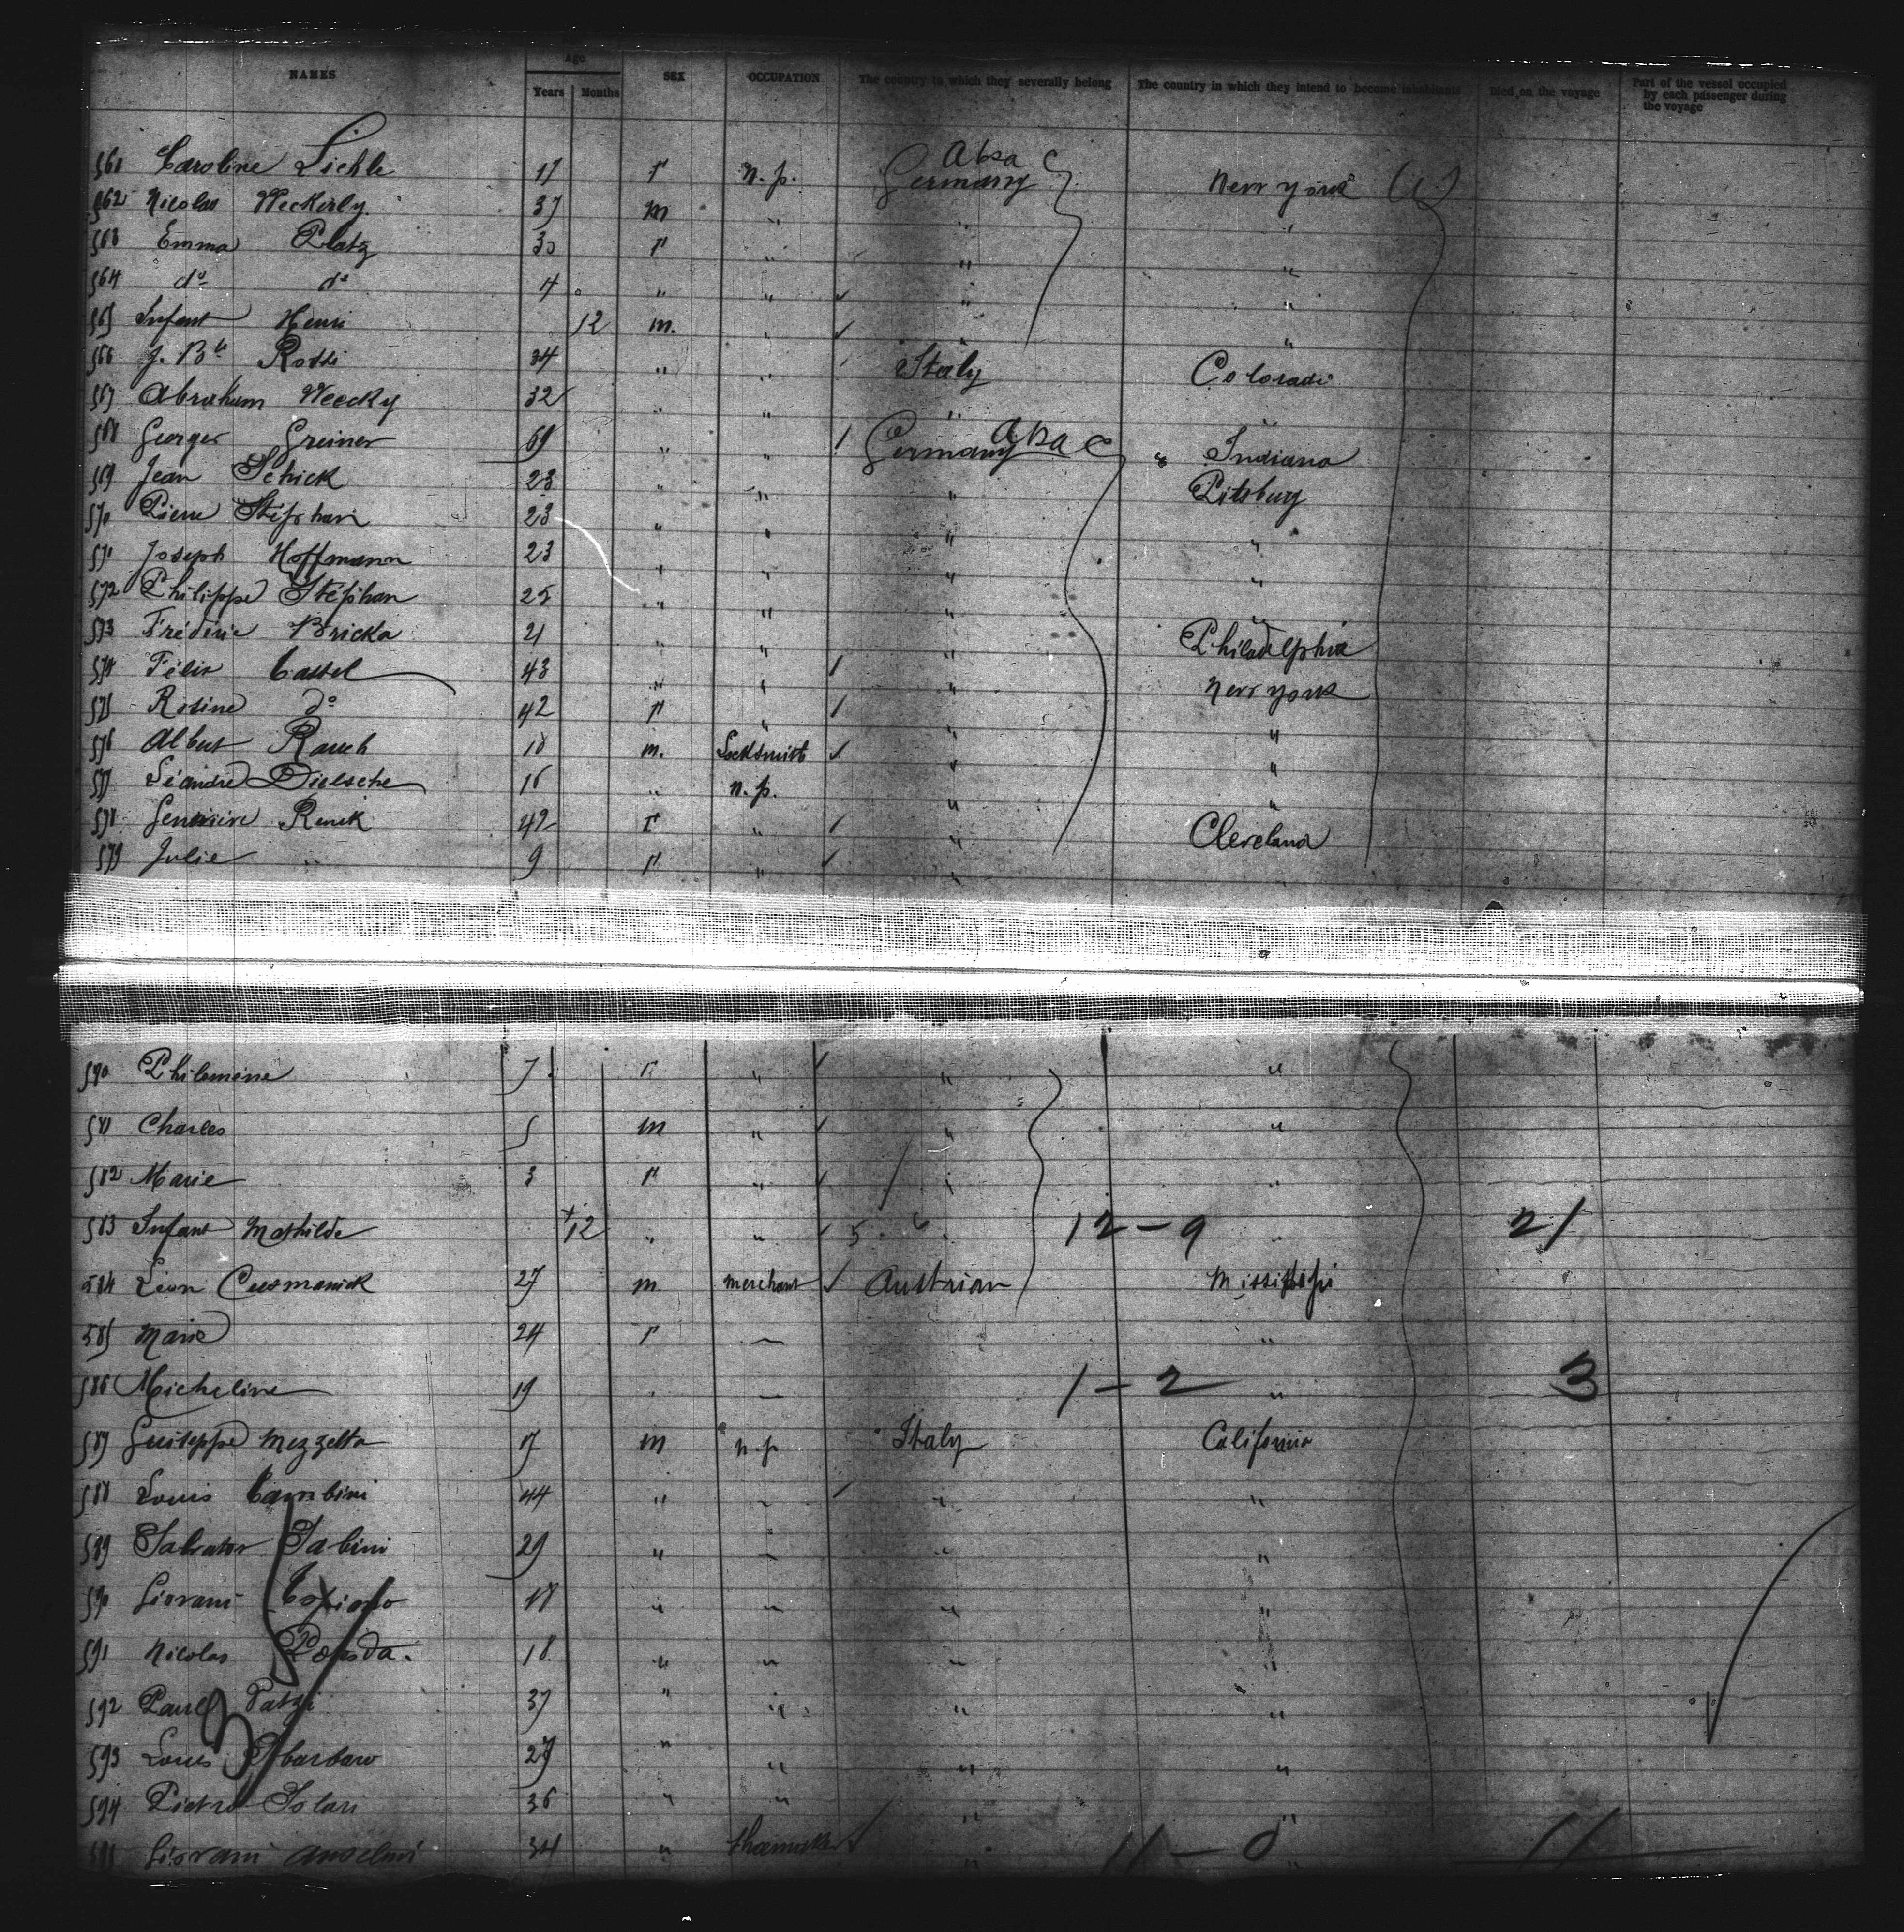 NAMES Age Years Months SEX OCCUPATION The country to which they severally belong The country in which they intend to become inhabitants Died on the voyage Part of the vessel occupied by each passenger during the voyage
561 Caroline Lichle 17 F n.p. Germany New York
562 Nicolas Weckerly 37 M " " "
563 Emma Platz 30 F " " "
564 do do 4 " " " "
565 Infant Henri 12 m. " " "
566 J. Bte Rossi 34 " " Italy Colorado
567 Abraham Weecky 32 " " " "
568 Georges Greiner 69 " " Germany " Indiana
569 Jean Schick 23 " " " Pitsburg
570 Pierre Stéphan 23 " " " "
571 Joseph Hoffmann 23 " " " "
572 Philippe Stéphan 25 " " " "
573 Fréderic Bricka 21 " " " Philadelphia
574 Félix Cassel 43 " " " New York
575 Rosine do 42 F " " "
576 Albert Rauch 18 m. Locksmith " "
577 Léandre Dielsche 16 " n.p. " "
578 Renck 42 F " " Cleveland
579 Julie " 9 F " "
580 Philomène 7 F " " "
581 Charles 5 M " " "
582 Marie 3 F " " "
583 Infant Mathilde 12 " " 12-9 21
584 Léon Cusmanick 27 M Merchant Austrian Mississipi
585 Marie 24 F "
586 Micheline 19 1-2 " 3
587 Guiseppe Mezzetta 17 M n.p. Italy California
588 Louis Cambini 44 " " " "
589 Salvator Sabini 29 " " " "
590 Giovani 18 " " " "
591 Nicolas 18 " " " "
592 Paul Patzi 37 " " " "
593 Louis Sbarbaro 27 " " " "
594 Pietro Solari 36 " " " "
595 Giovani Anselmi 34 " " 11-0 " 11